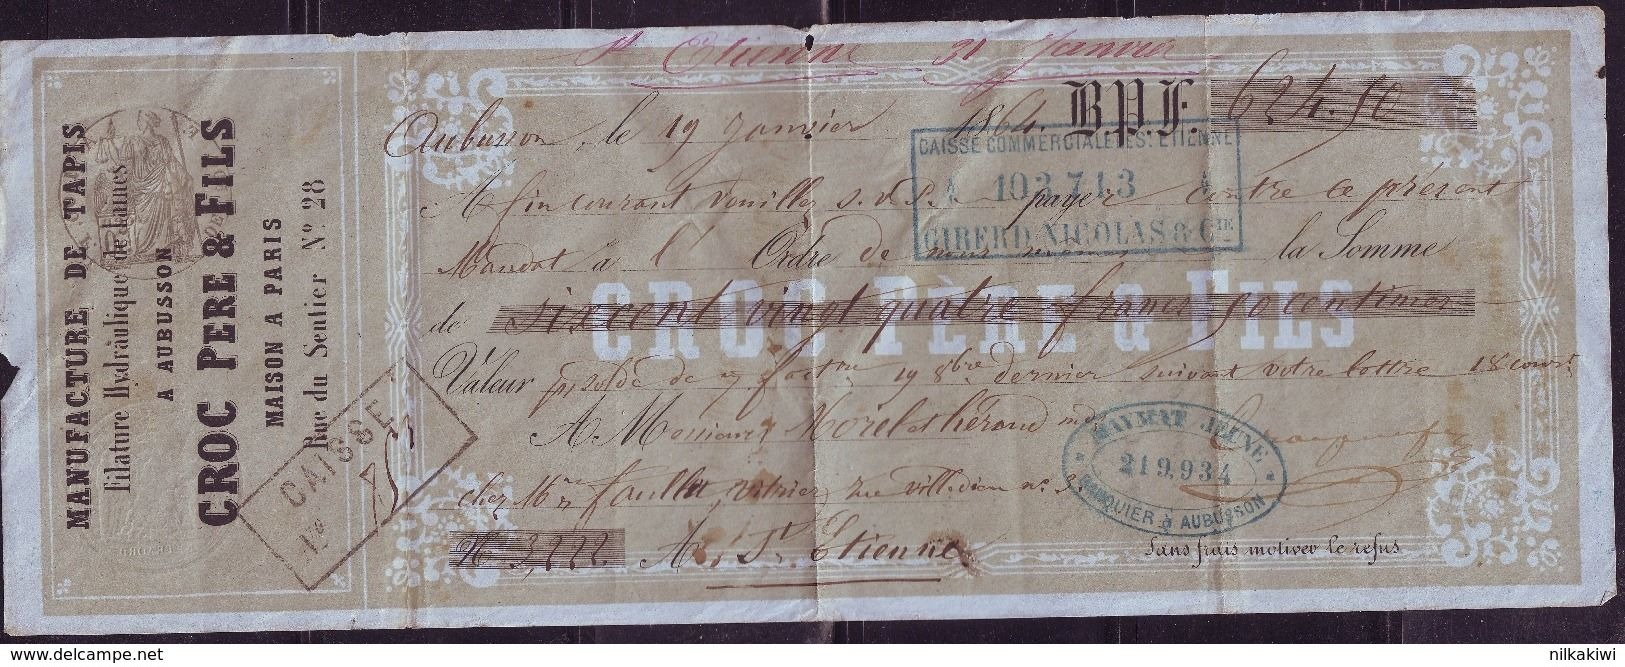 MANUFACTURE DE TAPIS
Filature Hydraulique de Laines
A AUBUSSON
CROC PERE & FILS
MAISON A PARIS
Rue du Sentier Nº 28
CAISSE
St Etienne 31 Janvier
Aubusson, le 19 Janvier 1864. B.P.F. 624.90
CAISSE COMMERCIALE DE ST. ETIENNE
A 103713 A
GIRERD, NICOLAS & CIE
A fin courant veuillez s.d.P. payer contre ce présent
Mandat à l' Ordre de nous mêmes la Somme
de six cent vingt quatre francs 90 centimes
CROC PÈRE & FILS
Valeur pr solde de n/ factre 19 8bre dernier suivant votre lettre 18 court
A Messieurs Morel et hérand mds
MAYMAT JEUNE
219.934
BANQUIER à AUBUSSON
chez Mr faullat vitrier rue villedieu nº 3
Nº 3,222 A St Etienne
Sans frais motiver le refus
delcampe.net
nilkakiwi